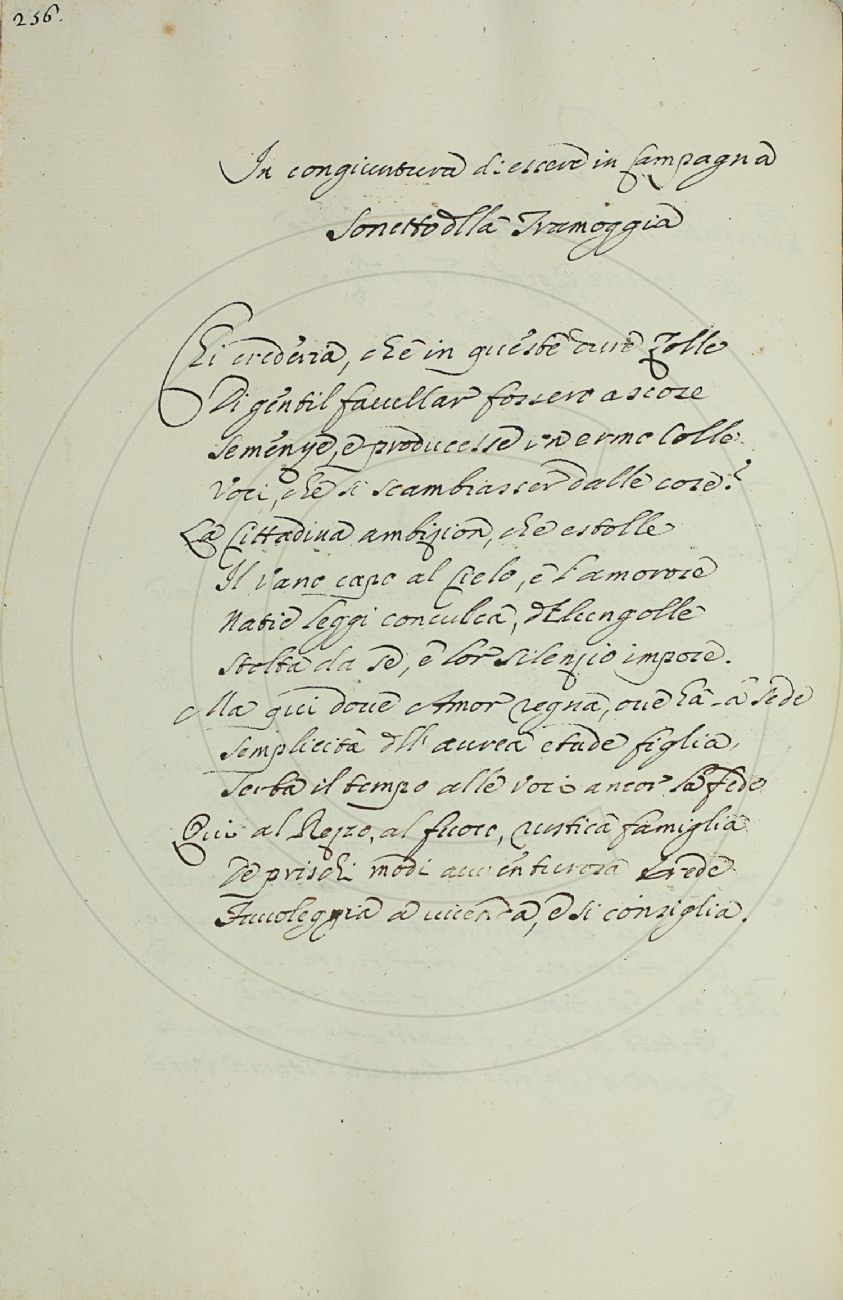 256.
In congiuntura di essere in Campagna
Sonetto dlla Tramoggia
Chi crederia, che in queste dure Zolle
Di gentil favellar fossero ascose
Semenze, e producesse un ermo Colle
Voci, che si scambiasser dalle cose?
La Cittadina ambizion, che estolle
Il vano capo al Cielo, e l'amorose
Natie leggi conculca, 
Stolta da se, e lor silenzio impose.
Ma qui dove Amor regna, ove ha la sede
Semplicità dll'aurea etade figlia,
Serba il tempo alle voci ancor la fede
Qui al Rezzo, al fuoco, rustica famiglia
De prischi modi avventurosa Erede
Favoleggia a vicenda, e si consiglia.